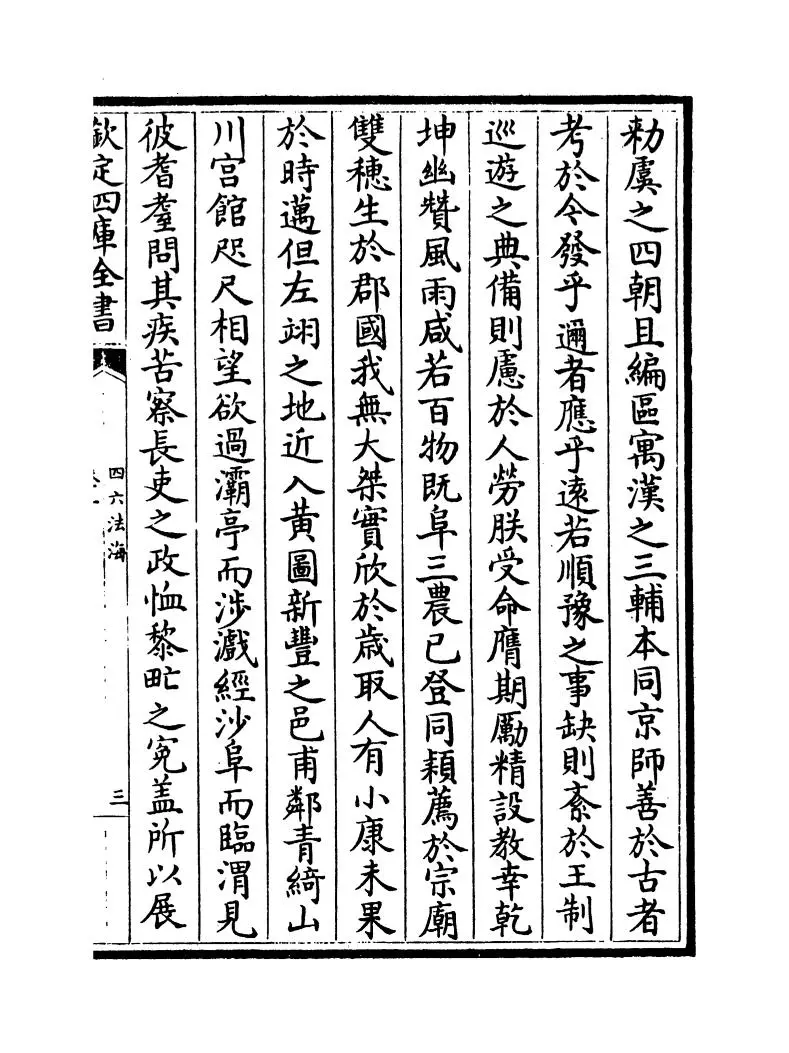 勑虞之四朝且編區寓漢之三輔本同京師善於古者
考於今發乎邇者應乎遠若順豫之事缺則紊於王制
巡遊之典備則慮於人勞朕受命膺期勵精設教幸乾
坤幽贊風雨咸若百物既阜三農已登同穎薦於宗廟
雙穗生於郡國我無大桀實欣於歳取人有小康未果
於時邁但左翊之地近入黄圖新豐之邑甫鄰青綺山
川宫館咫尺相望欲過灞亭而涉戲經沙阜而臨渭見
彼耆耋問其疾苦察長吏之政恤黎甿之寃盖所以展
欽定四庫全書
四六法海
三